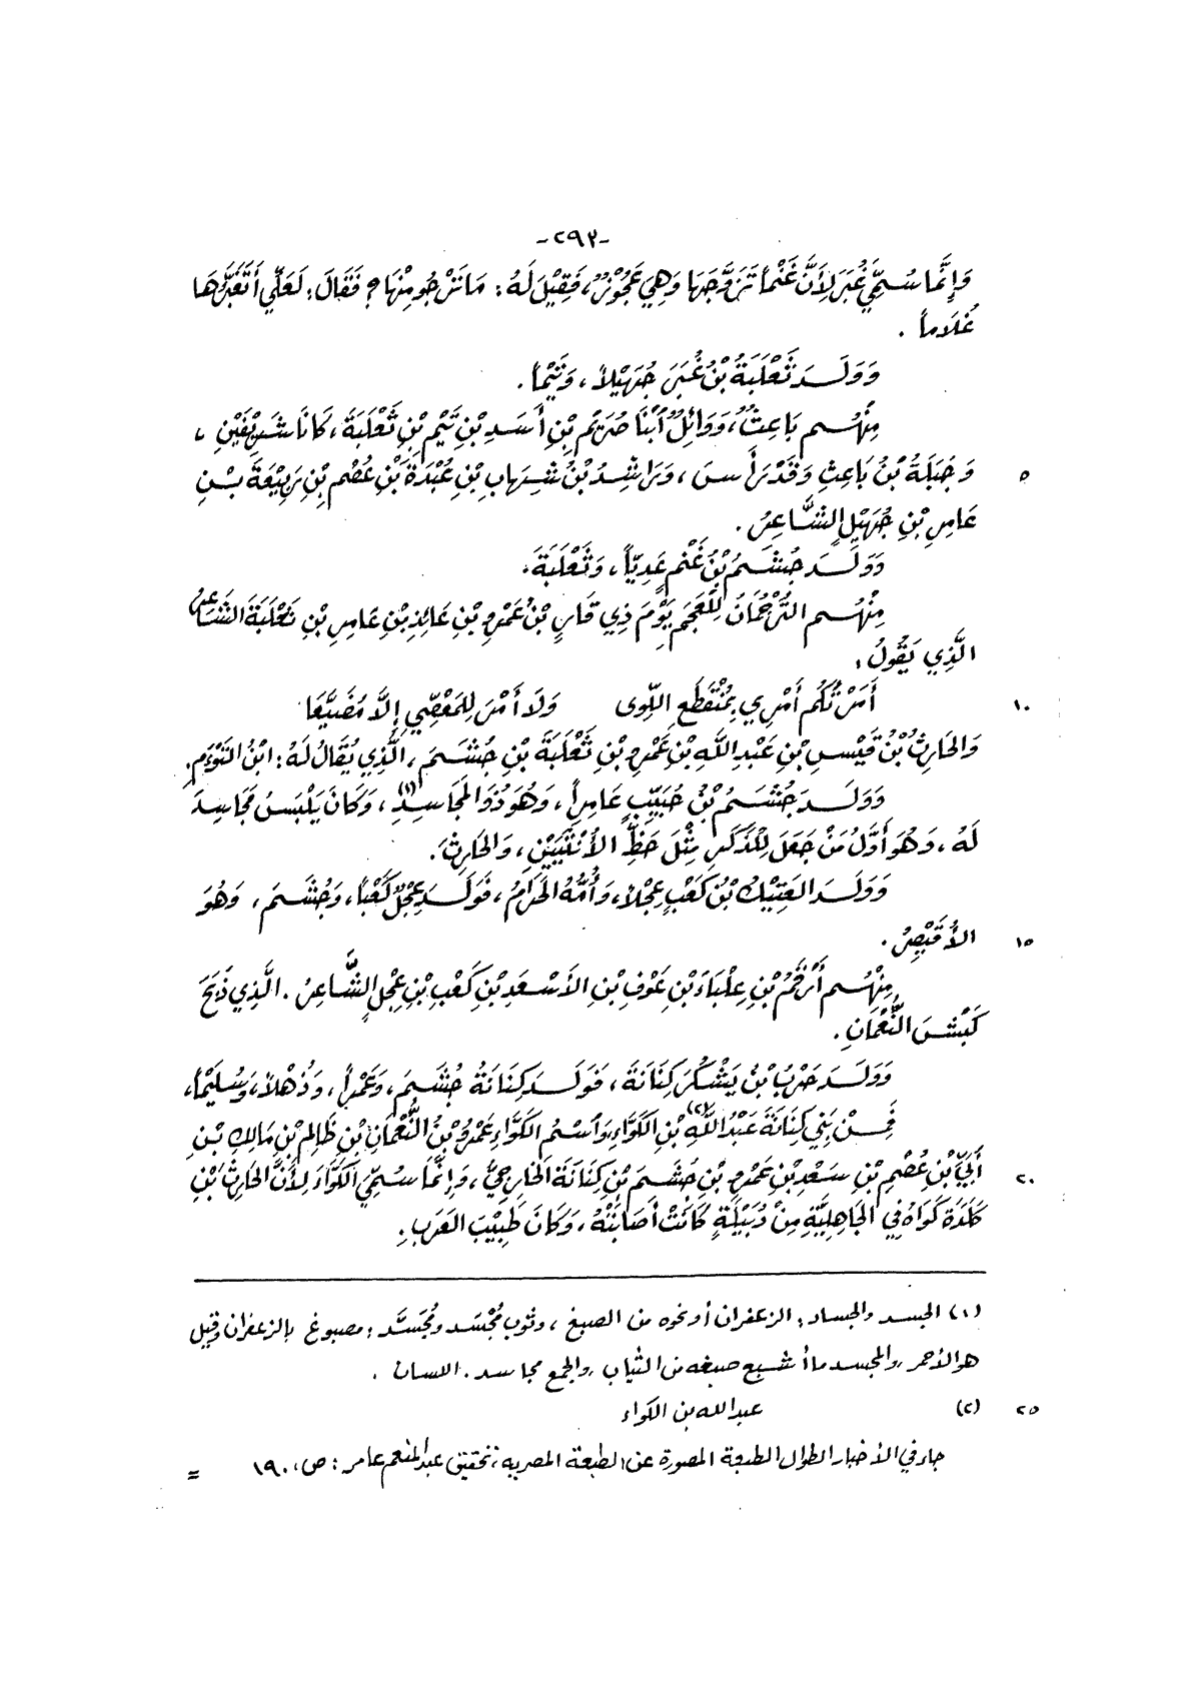 -٢٩٣-
وَإِنَّمَا سُمِّيَ غُبَرَ لِأَنَّ غَنْماً تَزَوَّجَهَا وَهِيَ عَجُوزٌ، فَقِيْلَ لَهُ: مَا تَرْجُو مِنْهَا؟ فَقَالَ: لَعَلِّي أَتَغَبَّرُهَا
غُلَاماً .
وَوَلَدَ ثَعْلَبَةُ بْنُ غُبَرَ جُهَيْلاً، وَتَيْماً.
مِنْهُم بَاعِثٌ، وَوَائِلٌ ٱبْنَا صُرَيْمِ بْنِ أَسَدِ بْنِ تَيْمِ بْنِ ثَعْلَبَةَ، كَانَا شَرِيْفَيْنِ ،
٥ وَجَبَلَةُ بْنُ بَاعِثٍ وَقَدْ رَأَسَ ، وَرَاشِدُ بْنُ شِهَابِ بْنِ عُبْدَةَ بْنِ عُصْمِ بْنِ رَبِيْعَةَ بْنِ
عَامِرِ بْنِ جُهَيْلٍ الشَّاعِرُ .
وَوَلَدَ جُشَمُ بْنُ غَنْمٍ عَدِيّاً ، وَثَعْلَبَةَ.
مِنْهُم التَّرْجُمَانُ لِلْعَجَمِ يَوْمَ ذِي قَارٍ بْنُ عَمْرِو بْنِ عَائِذِ بْنِ عَامِرِ بْنِ ثَعْلَبَةَ الشَّاعِرُ
الَّذِي يَقُولُ:
١٠ أَمَرْتُكُم أَمْرِي بِمُنْقَطَعِ اللِّوى وَلَا أَمْرَ لِلمَعْصِيِّ إِلَّا مُضَيَّعَا
وَالحَارِثُ بْنُ قَيْسِ بْنِ عَبْدِ اللَّهِ بْنِ عَمْرِو بْنِ ثَعْلَبَةَ بْنِ جُشَمَ ، الَّذِي يُقَالُ لَهُ: ابْنُ التَوْءَمِ.
وَوَلَدَ جُشَمُ بْنُ حُبَيِّبٍ عَامِراً ، وَهُوَ ذُو المَجَاسِدِ(١)، وَكَانَ يَلْبَسُ مَجَاسِدَ
لَهُ ، وَهُوَ أَوَّلُ مَنْ جَعَلَ لِلذَّكَرِ مِثْلَ حَظِّ الأُنْثَيَيْنِ ، وَالحَارِثَ .
وَوَلَدَ العَتِيْكُ بْنُ كَعْبٍ عِجْلاً، وَأُمُّهُ الحَرَامُ، فَوَلَدَ عِجْلٌ كَعْباً، وَجُشَمَ، وَهُوَ
١٥ الأُقَيْصِرُ .
مِنْهُم أَرْقَمُ بْنِ عِلْبَاءَ بْنِ عَوْفِ بْنِ الأَسْعَدِ بْنِ كَعْبِ بْنِ عِجْلٍ الشَّاعِرُ . الَّذِي ذَبَحَ
كَبْشَ النُّعْمَانِ .
وَوَلَدَ حَرْبُ بْنُ يَشْكُرَ كِنَانَةَ ، فَوَلَدَ كِنَانَةُ جُشَمَ ، وَعَمْراً ، وَذُهْلاً، وَسُلَيْماً،
فَمِنْ بَنِي كِنَانَةَ عَبْدُ اللَّهِ(٢) بْنِ الكَوَّاءِ وَٱسْمُ الكَوَّاءِ عَمْرُو بْنُ النُّعْمَانِ بْنِ ظَالِمِ بْنِ مَالِكِ بْنِ
٢٠ أُبَيِّ بْنِ عُصْمِ بْنِ سَعْدِ بْنِ عَمْرِو بْنِ جُشَمَ بْنِ كِنَانَةَ الخَارِجِيُّ، وَإِنَّمَا سُمِّيَ الكَوَّاءَ لِأَنَّ الحَارِثَ بْنَ
كَلَدَةَ كَوَاهُ فِي الجَاهِلِيَّةِ مِنْ دُبَيْلَةٍ كَانَتْ أَصَابَتْهُ ، وَكَانَ طَبِيْبَ العَرَبِ .
(١) الجسد والجساد : الزعفران أو نحوه من الصبغ ، وثوب مُجْسَد ومُجَسَّد : مصبوغ بالزعفران وقيل
هو الأحمر ، والمجسد ما أشبع صبغه من الثياب ، والجمع مجاسد . اللسان .
٢٥ (٢) عبد الله بن الكواء
جاء في الأخبار الطوال الطبعة المصورة عن الطبعة المصرية ، تحقيق عبد المنعم عامر : ص ، ١٩٠ =